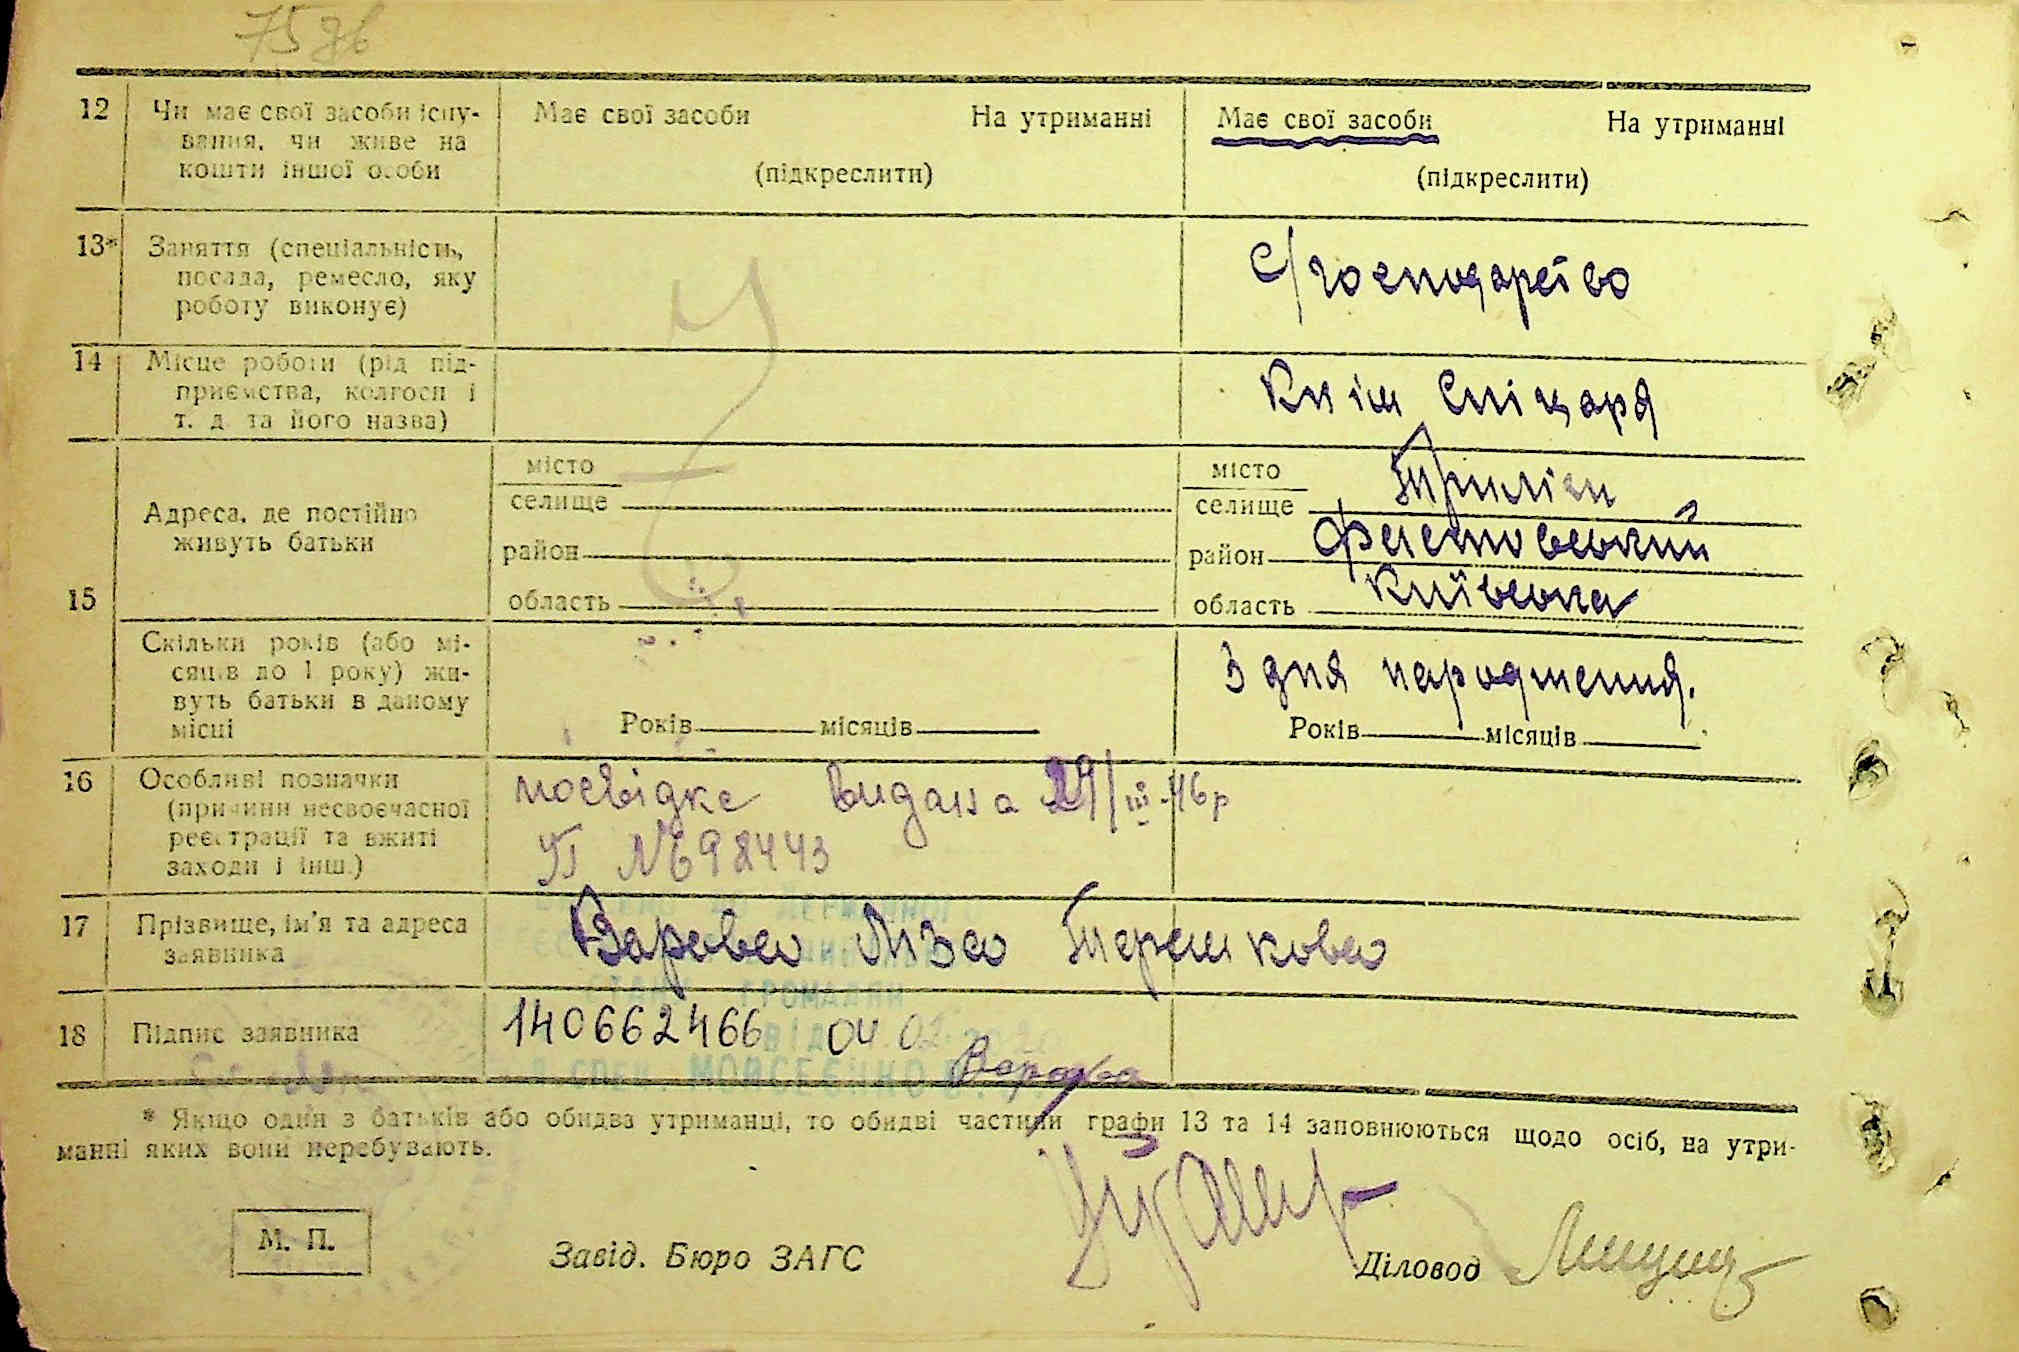 75
12 Чи має свої засоби існу- Має свої засоби На утриманні Має свої засоби На утриманні
вання, чи живе на
кошти іншої особи (підкреслити) (підкреслити)
13* Заняття (спеціальність, с/господарство
посада, ремесло, яку
роботу виконує)
14 Місце роботи (рід під- К-п ім Спіцаря
приємства, колгосп і
т. д. та його назва)
15 Адреса, де постійно
живуть батьки
місто місто Триліси
селище селище
район район Фастовський
область область Київська
Скільки років (або мі- З дня народження.
сяців до 1 року) жи-
вуть батьки в даному
місці Років місяців Років місяців
16 Особливі позначки посвідка видана 29/III-46р
(причини несвоєчасної
реєстрації та вжиті УТ № 698443
заходи і інш.)
17 Прізвище, ім'я та адреса Варава Ліза Терешкова
заявника
ДЕРЖАВНОГО
СТАНУ ГРОМАДЯН
18 Підпис заявника 140662466 04 02 Варава
СПЕЦ. МОВСЕЄНКО
* Якщо один з батьків або обидва утриманці, то обидві частини графи 13 та 14 заповнюються щодо осіб, на утри-
манні яких вони перебувають.
М. П. Завід. Бюро ЗАГС Діловод